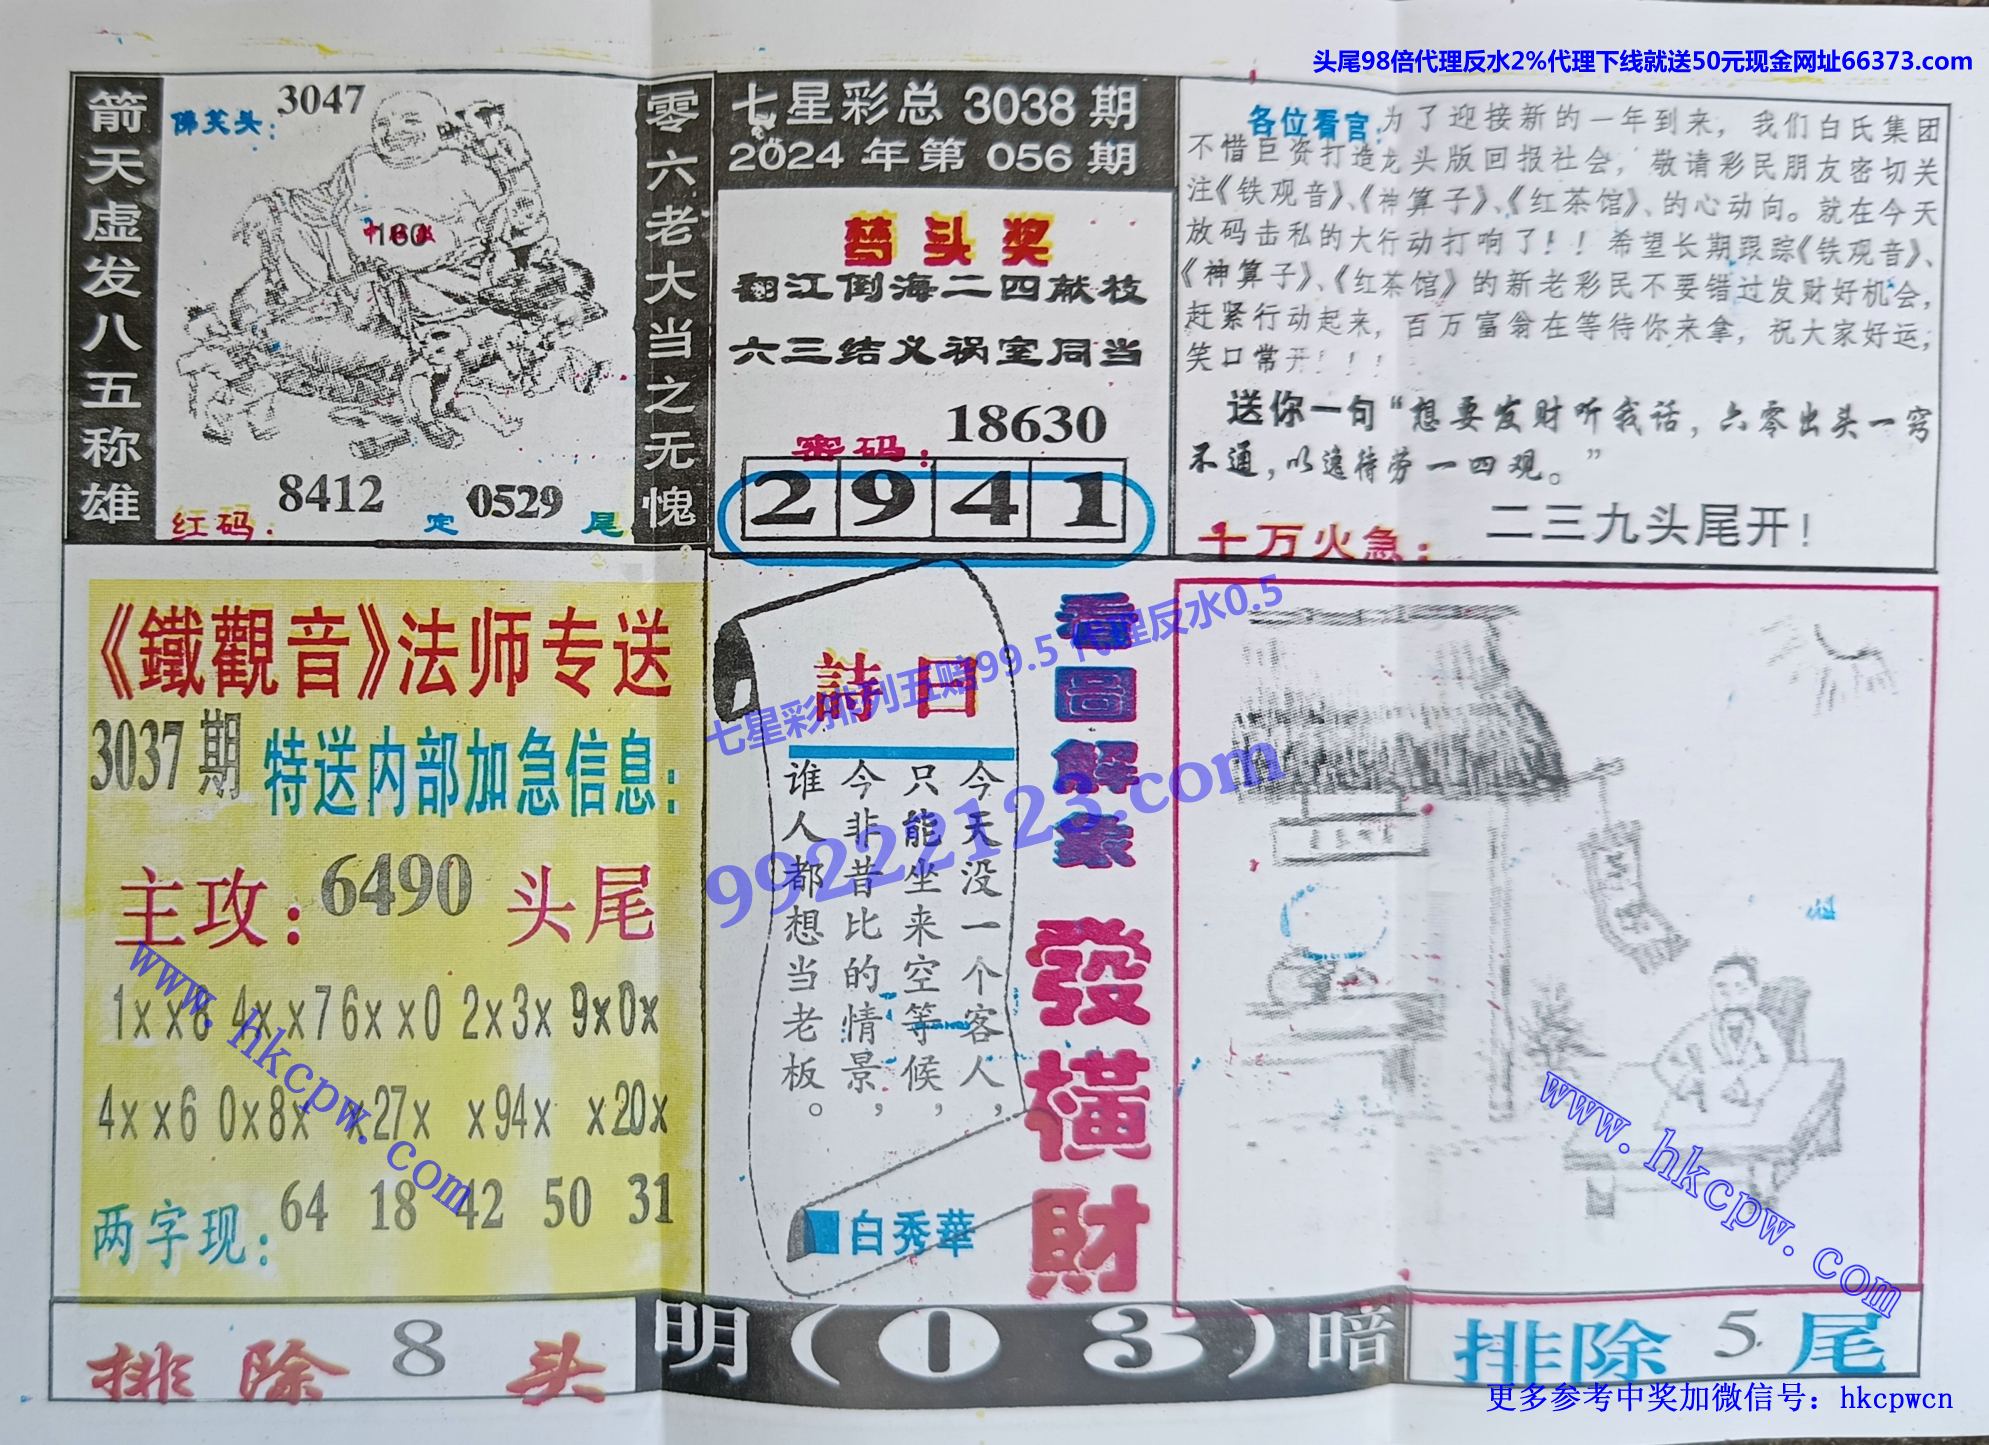 头尾98倍代理反水2%代理下线就送50元现金网址66373.com
箭天虚发八五称雄
佛笑头：3047
160
红码：8412 定 0529 尾
零六老大当之无愧
七星彩总 3038 期
2024 年第 056 期
头奖
翻江倒海二四献枝
六三结义祸室同当
密码：18630
2 9 4 1
各位看官：为了迎接新的一年到来，我们白氏集团
不惜巨资打造龙头版回报社会，敬请彩民朋友密切关
注《铁观音》、《神算子》、《红茶馆》、的心动向。就在今天
放码击私的大行动打响了！！希望长期跟踪《铁观音》、
《神算子》、《红茶馆》的新老彩民不要错过发财好机会，
赶紧行动起来，百万富翁在等待你来拿，祝大家好运，
笑口常开！！！
送你一句“想要发财听我话，六零出头一窍
不通，以逸待劳一四观。”
千万火急：二三九头尾开！
《鐵觀音》法师专送
3037 期 特送内部加急信息：
主攻：6490 头尾
1××8 4××7 6××0 2×3× 9×0×
4××6 0×8× ×27× ×94× ×20×
两字现：64 18 42 50 31
詩曰
今天没一个客人，
只能坐来空等候，
今非昔比的情景，
谁人都想当老板。
白秀華
看圖解象
發橫財
七星彩排列五赔99.5 代理反水0.5
99222123.com
www.hkcpw.com
www.hkcpw.com
排除 8 头
明（0 3）暗
排除 5 尾
更多参考中奖加微信号：hkcpwcn